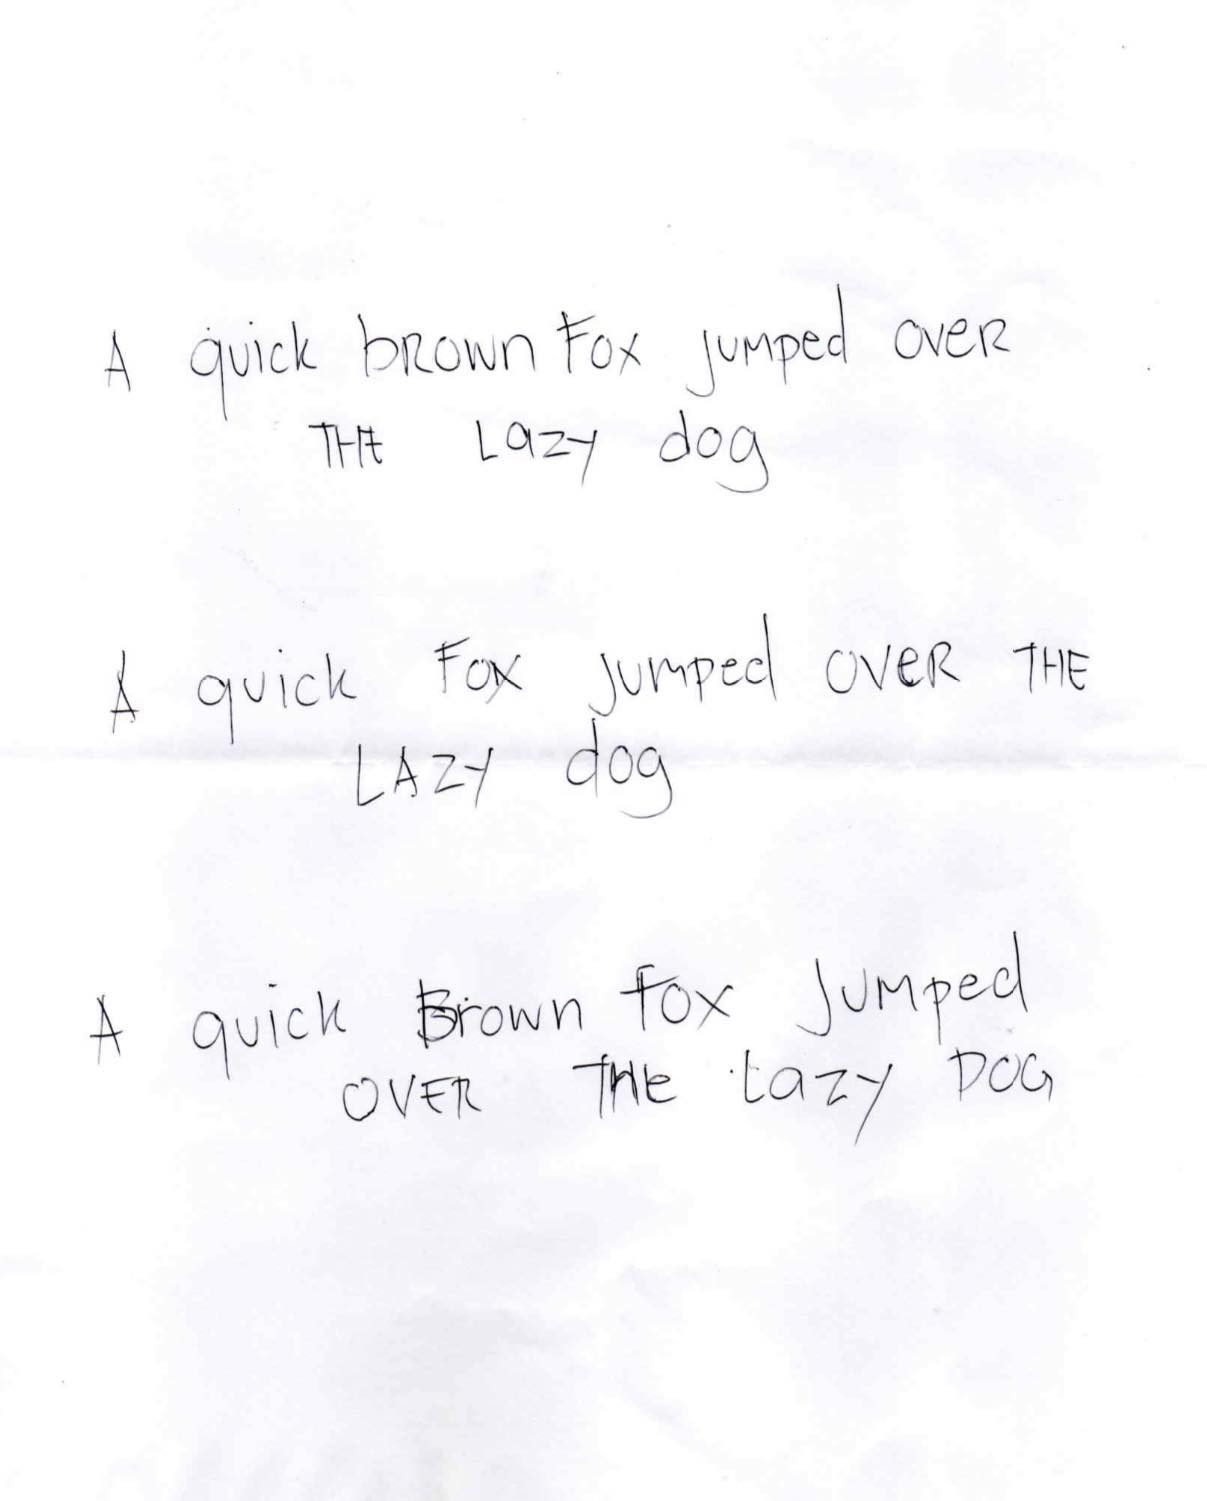 A quick bROWN FOX jumped OVER
THE LAZY dog
A quick FOX jumped OVER THE
LAZY dog
A quick Brown FOX JUMPED
OVER THE Lazy DOG